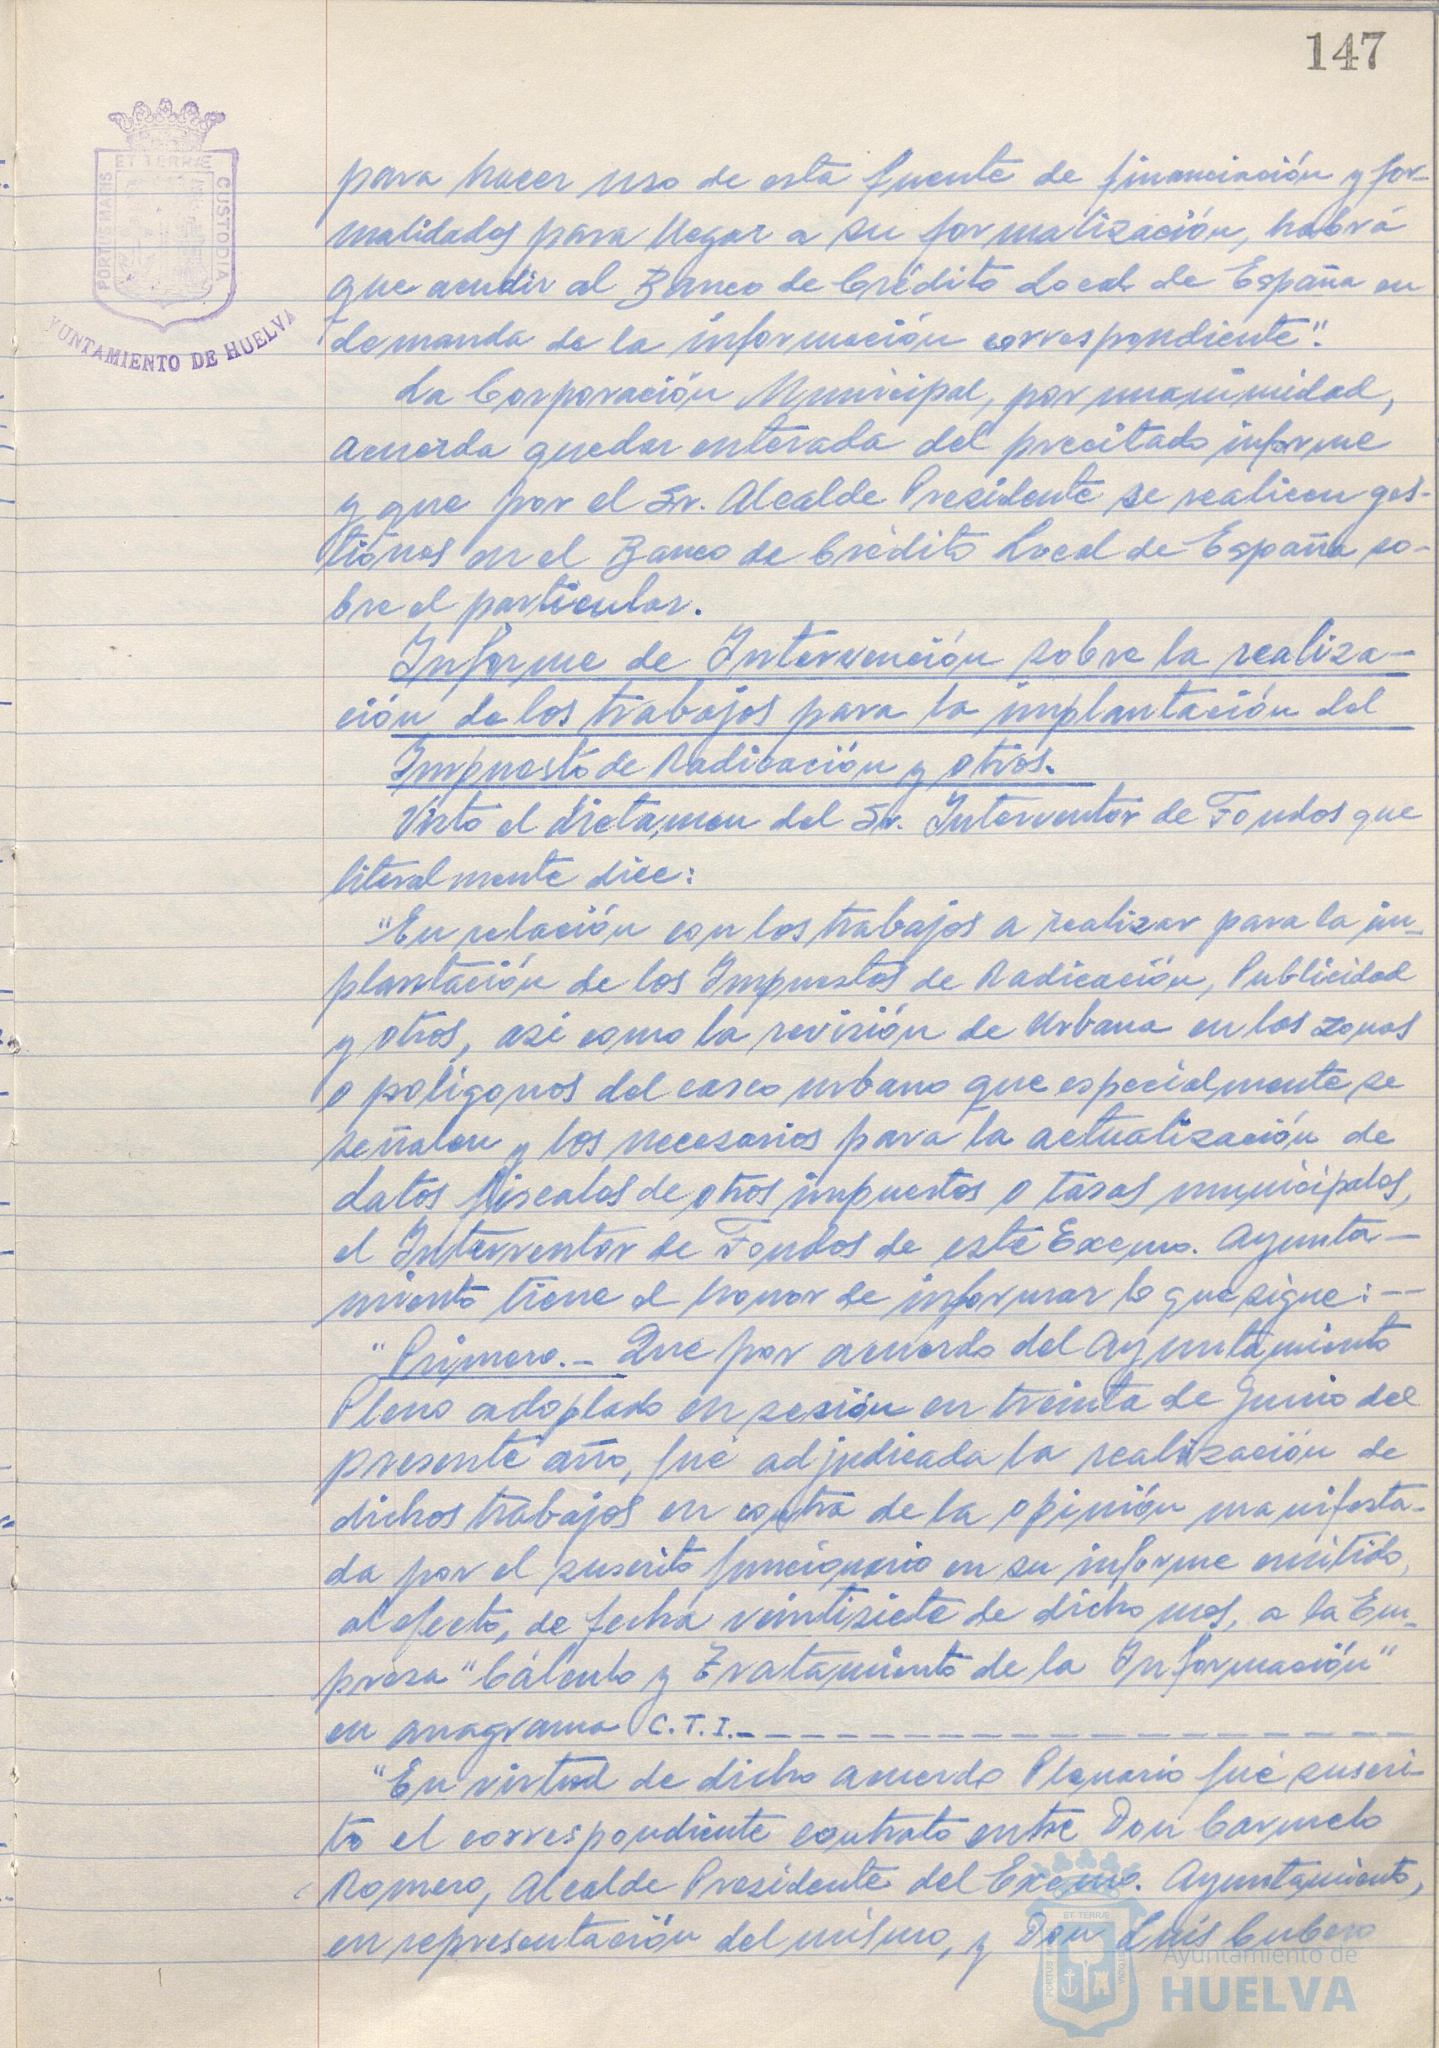 147
ET TERRÆ
PORTUS MARIS
CUSTODIA
YUNTAMIENTO DE HUELVA
para hacer uso de esta fuente de financiación y for-
malidades para llegar a su formalización, habrá
que acudir al Banco de Crédito Local de España en
demanda de la información correspondiente".
La Corporación Municipal, por unanimidad,
acuerda quedar enterada del precitado informe
y que por el Sr. Alcalde Presidente se realicen ges-
tiones en el Banco de Crédito Local de España so-
bre el particular.
Informe de Intervención sobre la realiza-
ción de los trabajos para la implantación del
Impuesto de Radicación y otros.
Visto el dictamen del Sr. Interventor de Fondos que
literalmente dice:
"En relación con los trabajos a realizar para la im-
plantación de los Impuestos de Radicación, Publicidad
y otros, asi como la revisión de Urbana en las zonas
o poligonos del casco urbano que especialmente se
señalen y los necesarios para la actualización de
datos fiscales de otros impuestos o tasas municipales,
el Interventor de Fondos de este Excmo. Ayunta-
miento tiene el honor de informar lo que sigue: --
"Primero.- Que por acuerdo del Ayuntamiento
Pleno adoptado en sesión en treinta de Junio del
presente año, fué adjudicada la realización de
dichos trabajos en contra de la opinión manifesta-
da por el suscrito funcionario en su informe emitido,
al efecto, de fecha veintisiete de dicho mes, a la Em-
presa "Cálculo y Tratamiento de la Información"
en anagrama C.T.I.- - - - - - - - - - - - - - - -
"En virtud de dicho acuerdo Plenario fué suscri-
to el correspondiente contrato entre Don Carmelo
Romero, Alcalde Presidente del Excmo. Ayuntamiento,
en representación del mismo, y Don Luis Cubero
ET TERRÆ
PORTUS
Ayuntamiento de
HUELVA